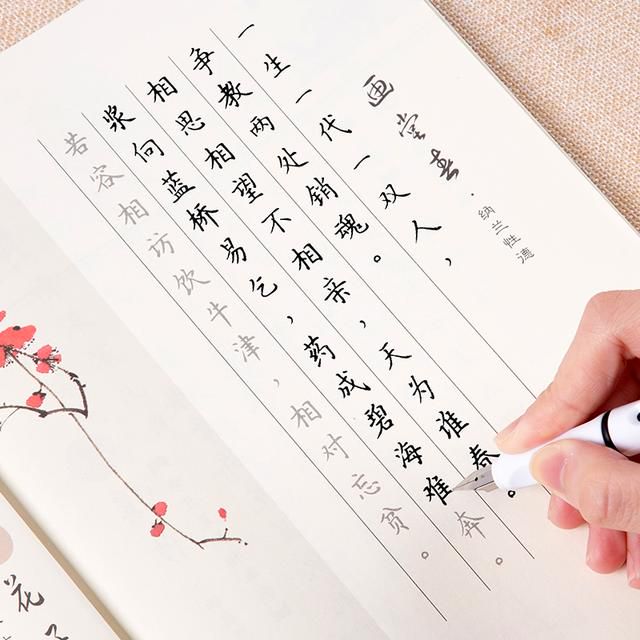 画堂春·纳兰性德
一生一代一双人，
争教两处销魂。
相思相望不相亲，天为谁春。
浆向蓝桥易乞，药成碧海难奔。
若容相访饮牛津，相对忘贫。
花